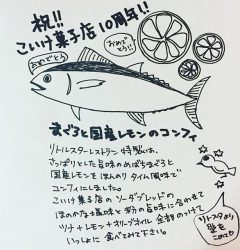 祝!!
こいけ菓子店10周年!!
おめでとう
おめでとう!!
まぐろと国産レモンのコンフィ
リトルスターレストラン特製は、
さっぱりとした旨味のめばちまぐろと
国産レモンをほんのりタイム風味で
コンフィにしました。
こいけ菓子店のソーダブレッドの
ほのかな塩味と粉の旨味に合わせて
ツナ+レモン+オリーブオイル全部のっけて
いっしょに食べて下さい。
リトルスターより
愛をこめて